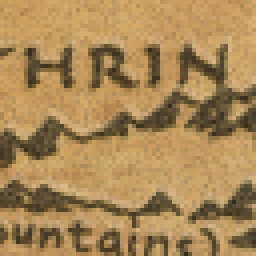 THRIN
ountains)